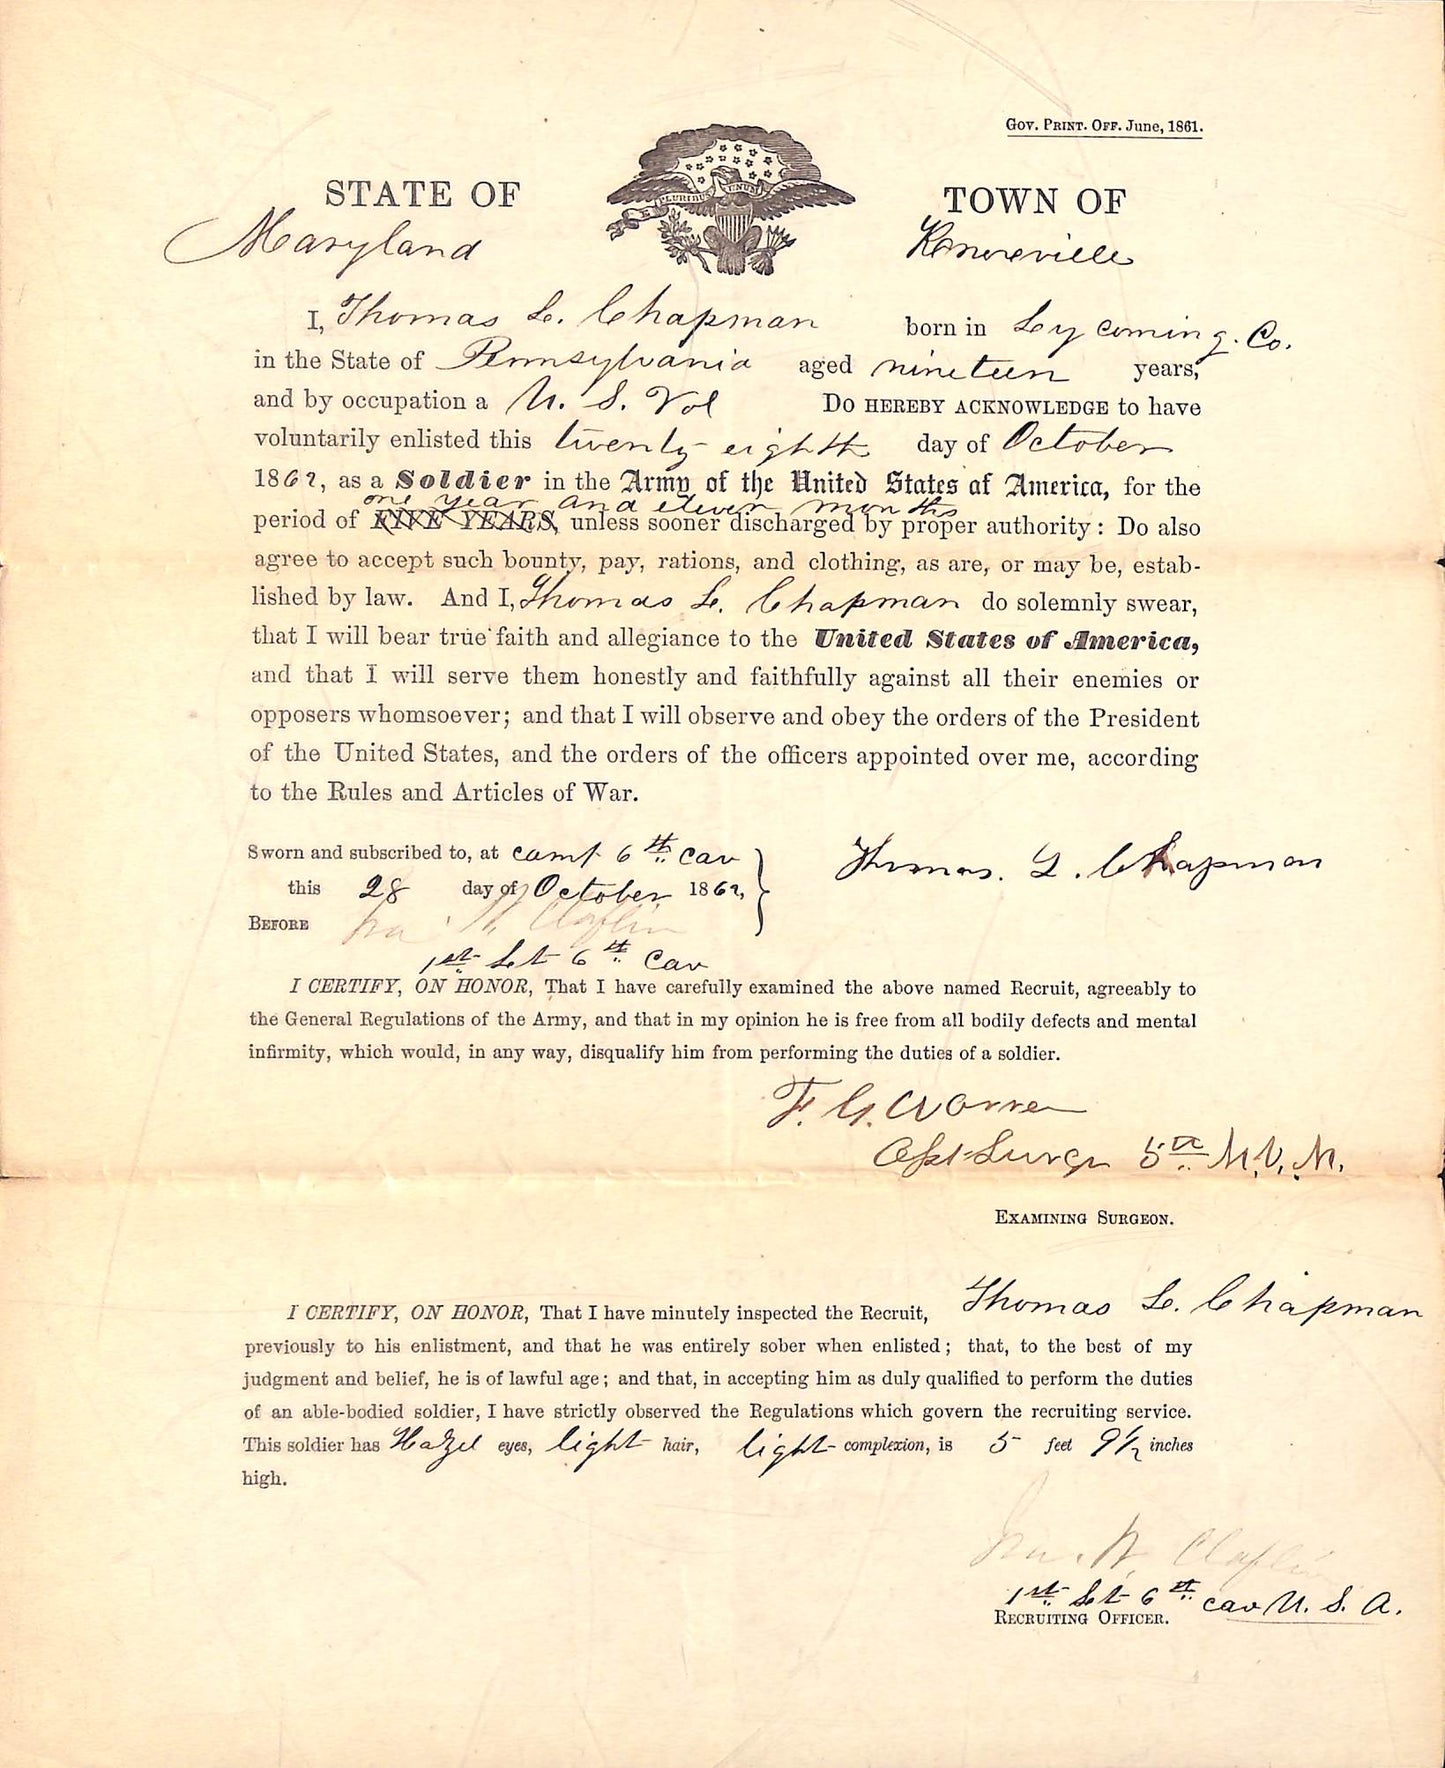 GOV. PRINT. OFF. June, 1861.
STATE OF
TOWN OF
E PLURIBUS UNUM
Maryland
Knoxeville
I, Thomas L. Chapman born in Lycoming. Co.
in the State of Pennsylvania aged nineteen years,
and by occupation a U. S. Vol DO HEREBY ACKNOWLEDGE to have
voluntarily enlisted this twenty-eighth day of October
1862, as a Soldier in the Army of the United States of America, for the
one year and eleven months
period of FIVE YEARS, unless sooner discharged by proper authority: Do also
agree to accept such bounty, pay, rations, and clothing, as are, or may be, estab-
lished by law. And I, Thomas L. Chapman do solemnly swear,
that I will bear true faith and allegiance to the United States of America,
and that I will serve them honestly and faithfully against all their enemies or
opposers whomsoever; and that I will observe and obey the orders of the President
of the United States, and the orders of the officers appointed over me, according
to the Rules and Articles of War.
Sworn and subscribed to, at camp 6th cav
Thomas. L. Chapman
this 28 day of October 1862,
BEFORE Ira W. Claflin
1st Lt 6th Cav
I CERTIFY, ON HONOR, That I have carefully examined the above named Recruit, agreeably to
the General Regulations of the Army, and that in my opinion he is free from all bodily defects and mental
infirmity, which would, in any way, disqualify him from performing the duties of a soldier.
F. G. Warren
Asst Surgn 5th M. V. M.
EXAMINING SURGEON.
I CERTIFY, ON HONOR, That I have minutely inspected the Recruit, Thomas L. Chapman
previously to his enlistment, and that he was entirely sober when enlisted; that, to the best of my
judgment and belief, he is of lawful age; and that, in accepting him as duly qualified to perform the duties
of an able-bodied soldier, I have strictly observed the Regulations which govern the recruiting service.
This soldier has Hazel eyes, light hair, light complexion, is 5 feet 9½ inches
high.
Ira. W. Claflin
1st Lt 6th cav U. S. A.
RECRUITING OFFICER.